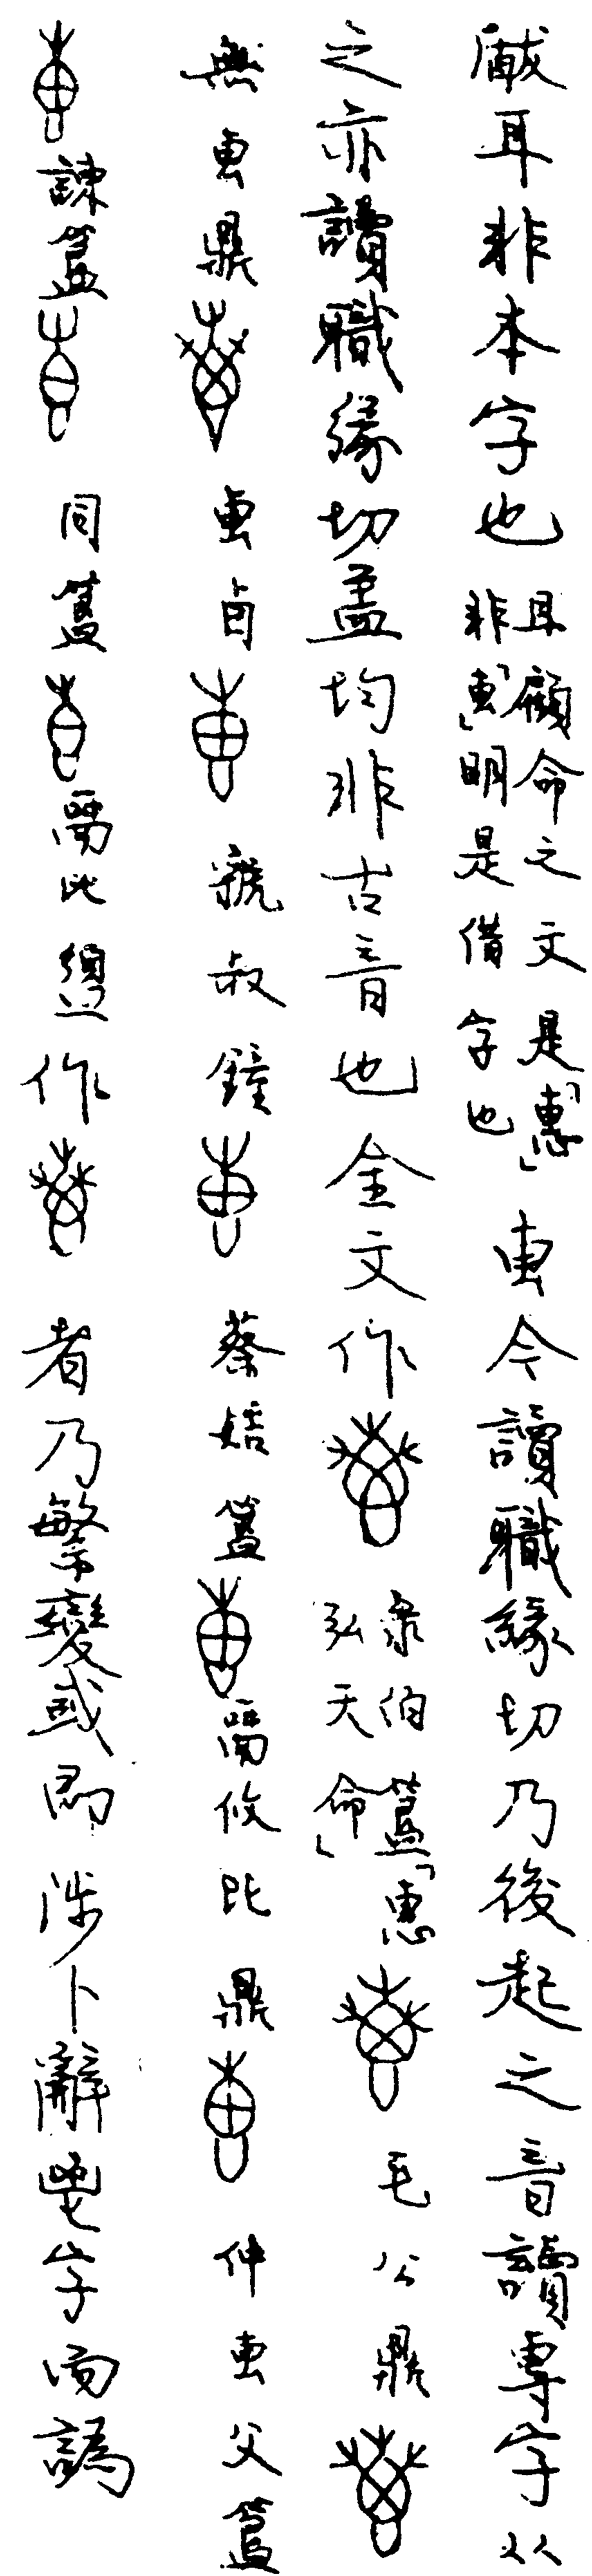 瞂耳非本字也耳顧命之文是「惠」非「叀」明是借字也叀今讀職緣切乃後起之音讀專字从
之亦讀職緣切盖均非古音也金文作彔伯簋「惠弘天命」毛公鼎
無叀鼎叀卣虢叔鐘蔡姞簋鬲攸比鼎仲叀父簋
諫簋同簋鬲比盨作者乃繁變或即涉卜辭鬯字而譌